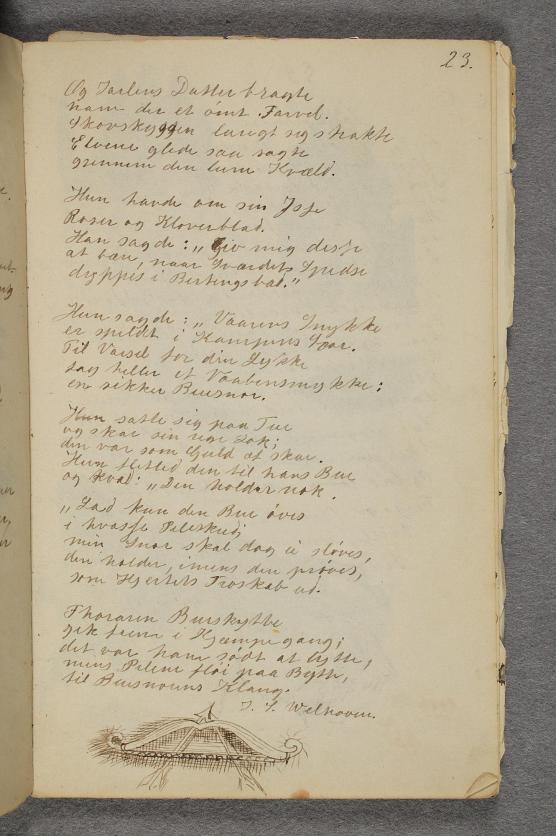 23.
Og Jarlens Datter bragte
ham der et ömt Farvel.
Skovskyggen langt sig strakte
Elvene glede saa sagte
gjennem den lune Kvæld.
Hun havde om sin Isse
Roser og Kløverblad.
Han sagde: „Giv mig disse
at bære, naar Sværdets Spidse
dyppes i Bersingsbad."
Hun sagde: „Vaarens Smykke
er spildt i Kampens Spor.
Til Varsel for din Lykke
tag heller et Vaabensmykke:
en sikker Buesnor.
Hun satte sig paa Tue
og skar sin rige Lok;
den var som Guld at skue.
Hun fletted den til hans Bue
og kvad: „Den holder nok.
„Lad kun den Bue öves
i hvasse Pileskud;
min Snor skal dog ei slöves,
den holder, imens den prøves,
som Hjertets Troskab ud.
Thoraren Bueskytte
gik frem i Kjæmpegang;
det var ham sødt at lytte,
mens Pilene fløi paa Bytte,
til Buesnorens Klang.
J. S. Welhaven.